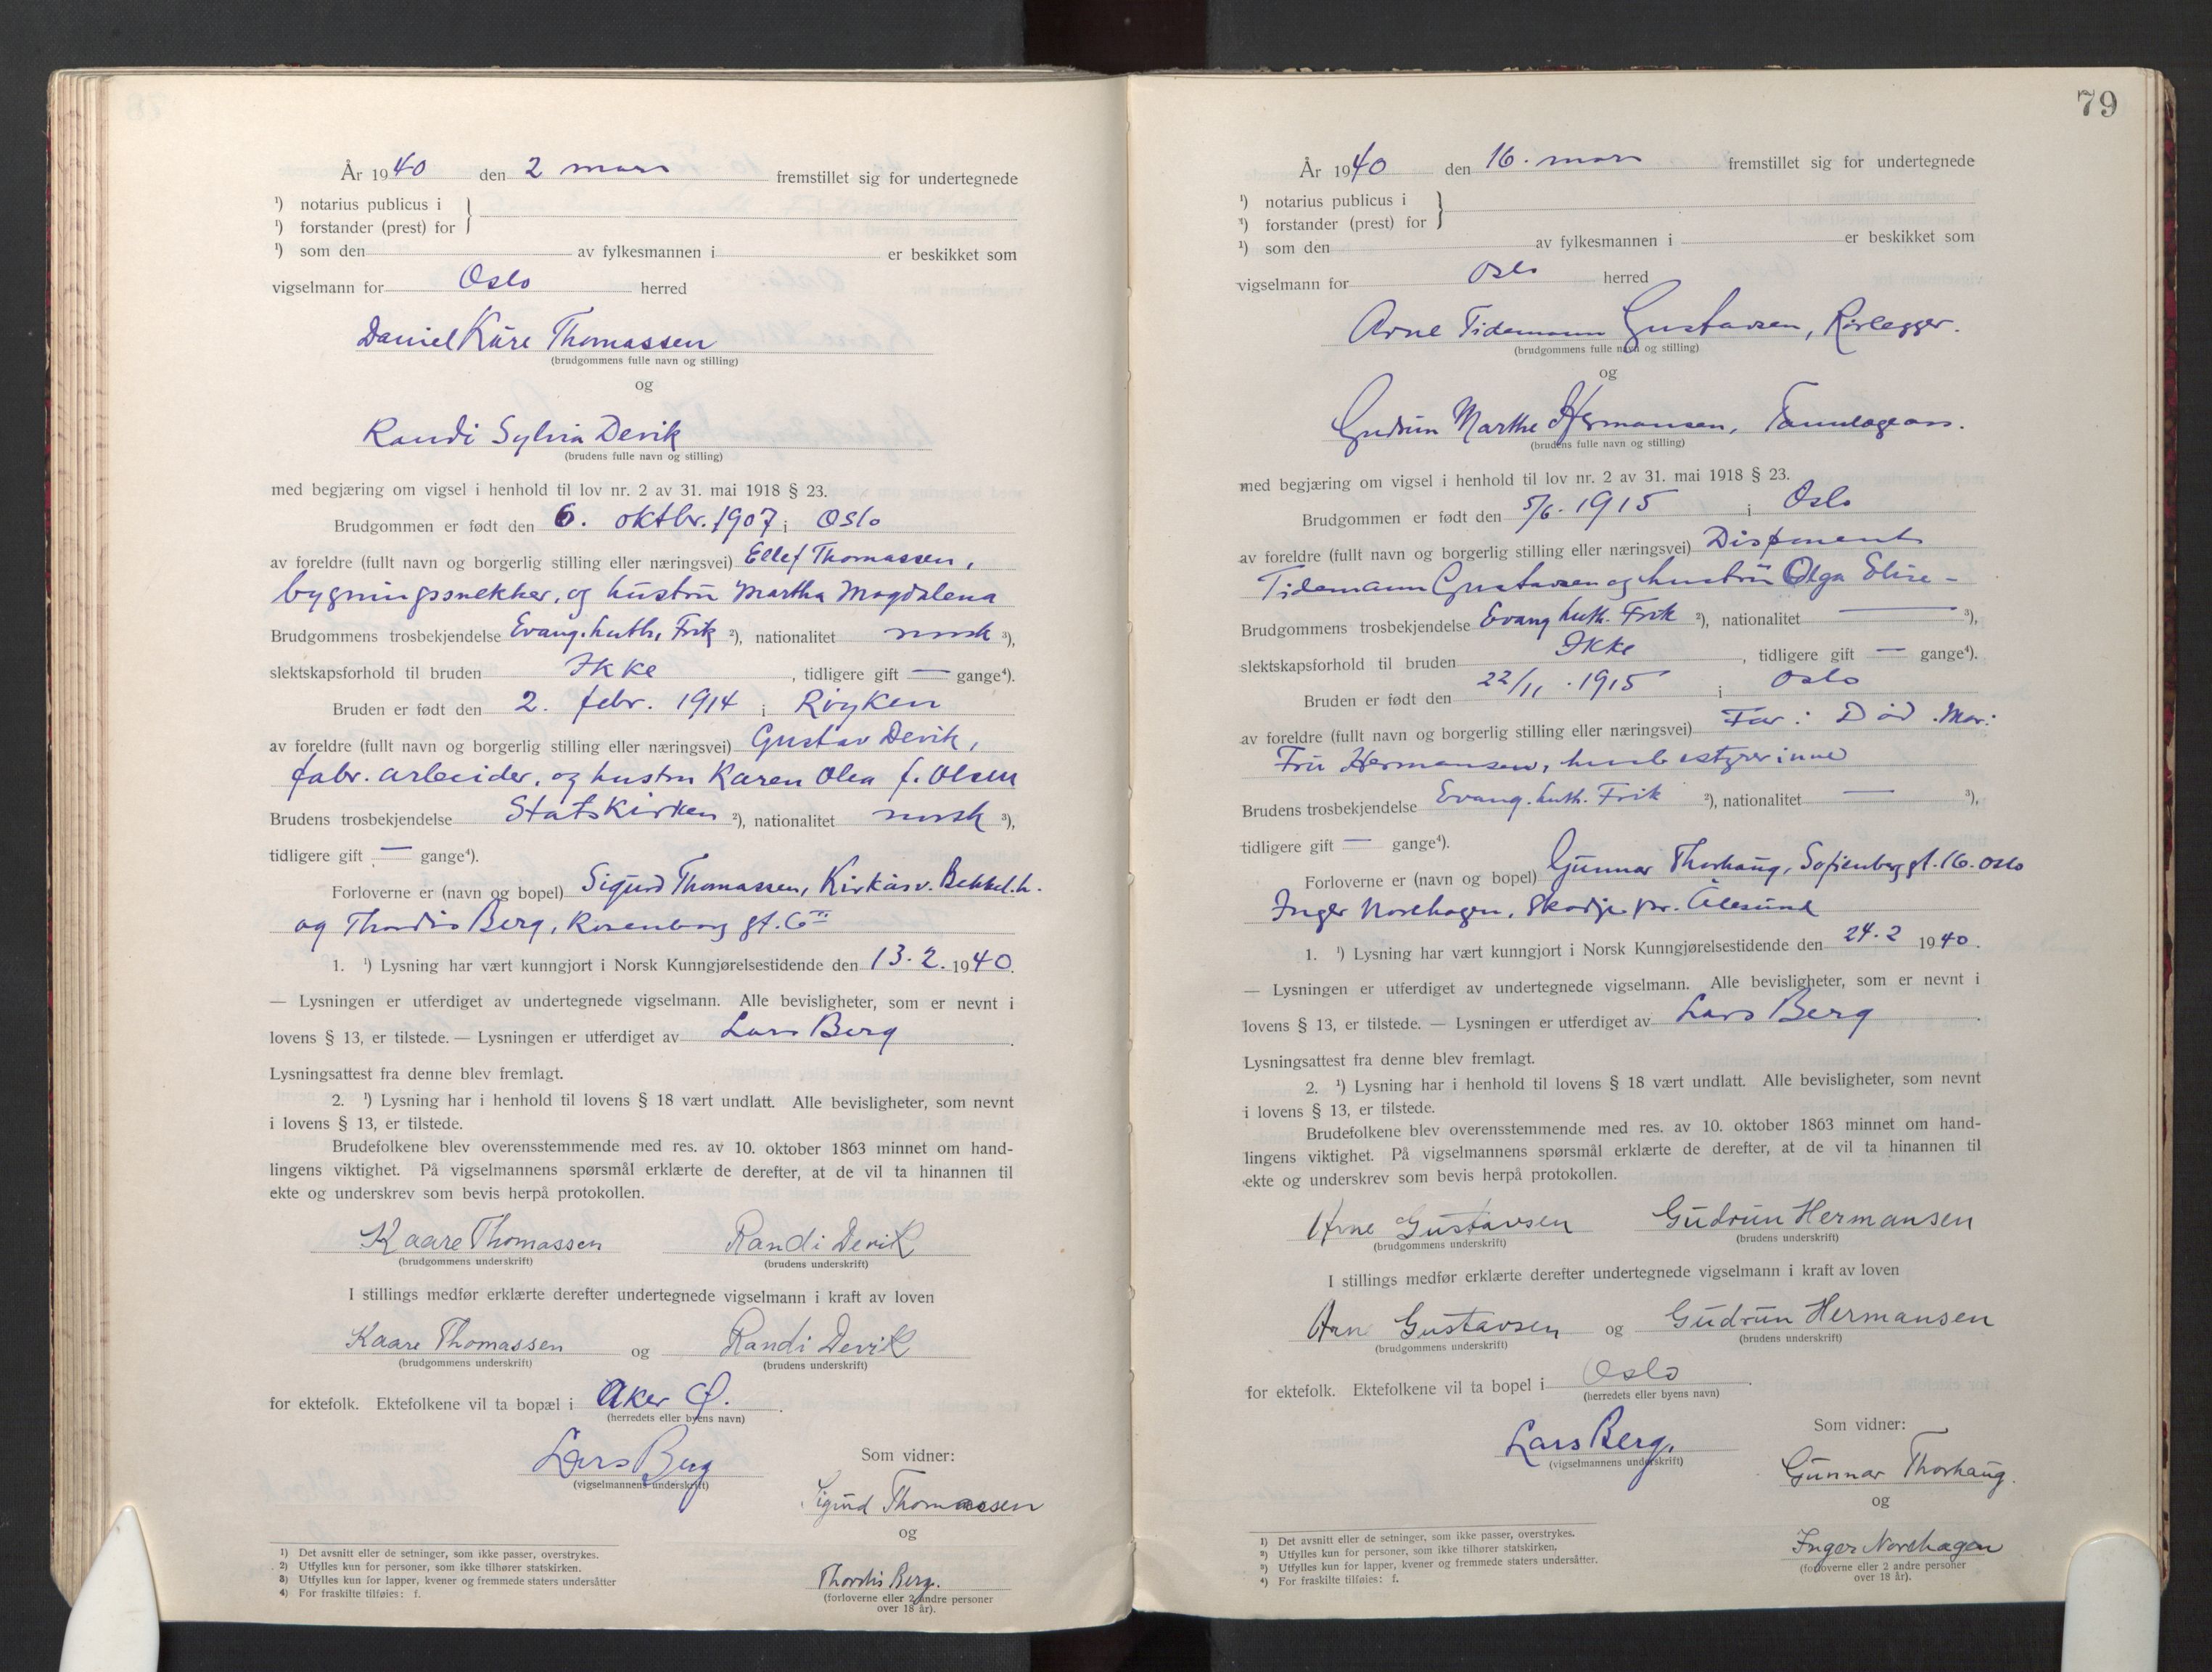 År 1940 den 2 mars fremstillet sig for undertegnede
¹) notarius publicus i
¹) forstander (prest) for
¹) som den av fylkesmannen i er beskikket som
vigselmann for Oslo herred
Daniel Kåre Thomassen
(brudgommens fulle navn og stilling)
og
Randi Sylvia Devik
(brudens fulle navn og stilling)
med begjæring om vigsel i henhold til lov nr. 2 av 31. mai 1918 § 23.
Brudgommen er født den 6. oktbr. 1907 i Oslo
av foreldre (fullt navn og borgerlig stilling eller næringsvei) Ellef Thomassen,
bygningssnekker, og hustru Martha Magdalena
Brudgommens trosbekjendelse Evang. luth. Frik ²), nationalitet norsk ³),
slektskapsforhold til bruden Ikke, tidligere gift — gange⁴).
Bruden er født den 2. febr. 1914 i Røyken
av foreldre (fullt navn og borgerlig stilling eller næringsvei) Gustav Devik,
fabr. arbeider, og hustru Karen Olea f. Olsen
Brudens trosbekjendelse Statskirken ²), nationalitet norsk ³),
tidligere gift — gange⁴).
Forloverne er (navn og bopel) Sigurd Thomassen, Kirkåsv. Bekkel.h.
og Thordis Berg, Rosenborg gt. 6 III
1. ¹) Lysning har vært kunngjort i Norsk Kunngjørelsestidende den 13.2. 1940.
— Lysningen er utferdiget av undertegnede vigselmann. Alle bevisligheter, som er nevnt i
lovens § 13, er tilstede. — Lysningen er utferdiget av Lars Berg.
Lysningsattest fra denne blev fremlagt.
2. ¹) Lysning har i henhold til lovens § 18 vært undlatt. Alle bevisligheter, som nevnt
i lovens § 13, er tilstede.
Brudefolkene blev overensstemmende med res. av 10. oktober 1863 minnet om hand-
lingens viktighet. På vigselmannens spørsmål erklærte de derefter, at de vil ta hinannen til
ekte og underskrev som bevis herpå protokollen.
Kaare Thomassen Randi Devik
(brudgommens underskrift) (brudens underskrift)
I stillings medfør erklærte derefter undertegnede vigselmann i kraft av loven
Kaare Thomassen og Randi Devik
(brudgommens underskrift) (brudens underskrift)
for ektefolk. Ektefolkene vil ta bopæl i Aker Ø.
(herredets eller byens navn)
Lars Berg
(vigselmannens underskrift)
Som vidner:
Sigurd Thomassen
og
Thordis Berg.
(forloverne eller 2 andre personer
over 18 år).
¹) Det avsnitt eller de setninger, som ikke passer, overstrykes.
²) Utfylles kun for personer, som ikke tilhører statskirken.
³) Utfylles kun for lapper, kvener og fremmede staters undersåtter
⁴) For fraskilte tilføies: f.
79
År 1940 den 16. mars fremstillet sig for undertegnede
¹) notarius publicus i
¹) forstander (prest) for
¹) som den av fylkesmannen i er beskikket som
vigselmann for Oslo herred
Arne Tidemann Gustavsen, Rørlegger.
(brudgommens fulle navn og stilling)
og
Gudrun Marthe Hermansen, Tannlegeass.
(brudens fulle navn og stilling)
med begjæring om vigsel i henhold til lov nr. 2 av 31. mai 1918 § 23.
Brudgommen er født den 5/6. 1915 i Oslo
av foreldre (fullt navn og borgerlig stilling eller næringsvei) Disponent
Tidemann Gustavsen og hustru Olga Elise –
Brudgommens trosbekjendelse Evang luth. Frik ²), nationalitet — ³),
slektskapsforhold til bruden Ikke, tidligere gift — gange⁴).
Bruden er født den 22/11. 1915 i Oslo
av foreldre (fullt navn og borgerlig stilling eller næringsvei) Far: Død. Mor:
Fru Hermansen, husbestyrerinne
Brudens trosbekjendelse Evang. luth. Frik ²), nationalitet — ³),
tidligere gift — gange⁴).
Forloverne er (navn og bopel) Gunnar Thorhaug, Sofienberg gt. 16. Oslo
Inger Norehagen, Skodje pr. Ålesund
1. ¹) Lysning har vært kunngjort i Norsk Kunngjørelsestidende den 24.2 1940.
— Lysningen er utferdiget av undertegnede vigselmann. Alle bevisligheter, som er nevnt i
lovens § 13, er tilstede. — Lysningen er utferdiget av Lars Berg.
Lysningsattest fra denne blev fremlagt.
2. ¹) Lysning har i henhold til lovens § 18 vært undlatt. Alle bevisligheter, som nevnt
i lovens § 13, er tilstede.
Brudefolkene blev overensstemmende med res. av 10. oktober 1863 minnet om hand-
lingens viktighet. På vigselmannens spørsmål erklærte de derefter, at de vil ta hinannen til
ekte og underskrev som bevis herpå protokollen.
Arne Gustavsen Gudrun Hermansen
(brudgommens underskrift) (brudens underskrift)
I stillings medfør erklærte derefter undertegnede vigselmann i kraft av loven
Arne Gustavsen og Gudrun Hermansen
(brudgommens underskrift) (brudens underskrift)
for ektefolk. Ektefolkene vil ta bopel i Oslo.
(herredets eller byens navn)
Lars Berg.
(vigselmannens underskrift)
Som vidner:
Gunnar Thorhaug.
og
Inger Norehagen
(forloverne eller 2 andre personer
over 18 år).
¹) Det avsnitt eller de setninger, som ikke passer, overstrykes.
²) Utfylles kun for personer, som ikke tilhører statskirken.
³) Utfylles kun for lapper, kvener og fremmede staters undersåtter.
⁴) For fraskilte tilføies: f.